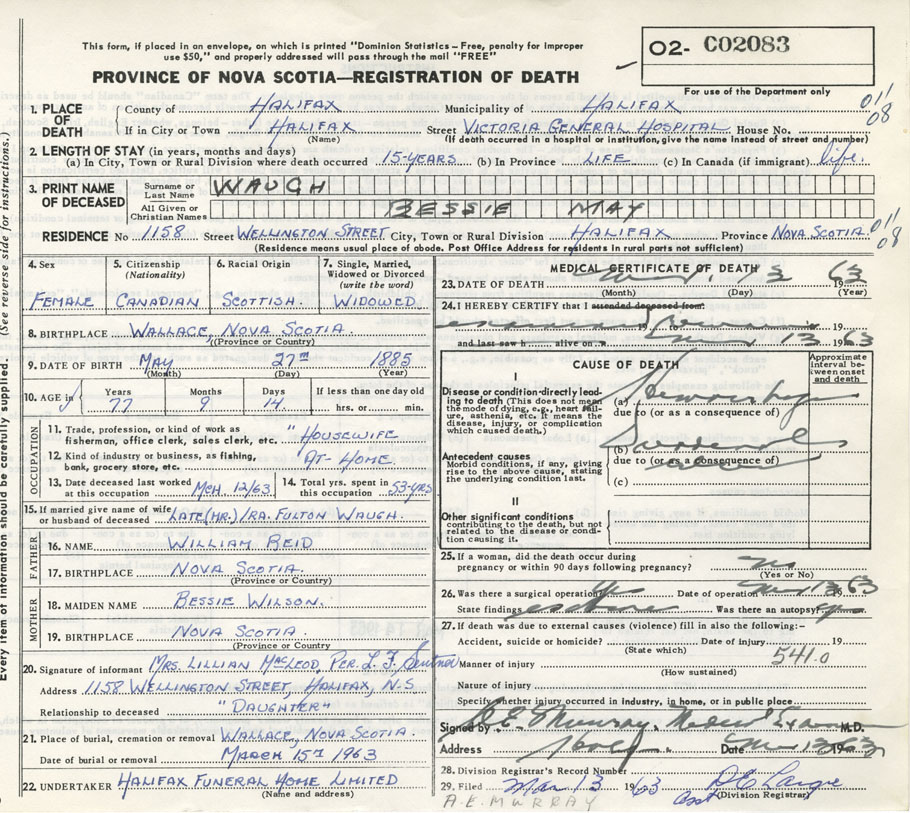 This form, if placed in an envelope, on which is printed "Dominion Statistics – Free, penalty for improper
use $50," and properly addressed will pass through the mail "FREE"
PROVINCE OF NOVA SCOTIA—REGISTRATION OF DEATH
O2- C02083
For use of the Department only
011
08
1. PLACE OF DEATH County of HALIFAX Municipality of HALIFAX
If in City or Town HALIFAX Street VICTORIA GENERAL HOSPITAL House No.
(Name) (If death occurred in a hospital or institution, give the name instead of street and number)
2. LENGTH OF STAY (in years, months and days)
(a) In City, Town or Rural Division where death occurred 15-YEARS (b) In Province LIFE (c) In Canada (if immigrant) life.
3. PRINT NAME OF DECEASED Surname or Last Name WAUGH
All Given or Christian Names BESSIE MAY
RESIDENCE No 1158 Street WELLINGTON STREET City, Town or Rural Division HALIFAX Province NOVA SCOTIA 011
08
(Residence means usual place of abode. Post Office Address for residents in rural parts not sufficient)
4. Sex 5. Citizenship (Nationality) 6. Racial Origin 7. Single, Married, Widowed or Divorced (write the word)
FEMALE CANADIAN SCOTTISH. WIDOWED
8. BIRTHPLACE WALLACE, NOVA SCOTIA.
(Province or Country)
9. DATE OF BIRTH MAY 27TH 1885
(Month) (Day) (Year)
10. AGE in Years Months Days If less than one day old
77 9 14 hrs. or min.
OCCUPATION
11. Trade, profession, or kind of work as
fisherman, office clerk, sales clerk, etc. "HOUSEWIFE
12. Kind of industry or business, as fishing,
bank, grocery store, etc. AT-HOME.
13. Date deceased last worked at this occupation MCH. 12/63 14. Total yrs. spent in this occupation 53-YRS
15. If married give name of wife
or husband of deceased LATE (MR.) IRA. FULTON WAUGH.
FATHER
16. NAME WILLIAM REID
17. BIRTHPLACE NOVA SCOTIA.
(Province or Country)
MOTHER
18. MAIDEN NAME BESSIE WILSON.
19. BIRTHPLACE NOVA SCOTIA
(Province or Country)
20. Signature of informant MRS. LILLIAN MCLEOD, PER L. F.
Address 1158 WELLINGTON STREET, HALIFAX, N-S
Relationship to deceased "DAUGHTER"
21. Place of burial, cremation or removal WALLACE, NOVA SCOTIA.
Date of burial or removal MARCH 15TH 1963
22. UNDERTAKER HALIFAX FUNERAL HOME LIMITED
(Name and address)
MEDICAL CERTIFICATE OF DEATH
23. DATE OF DEATH 13 1963
(Month) (Day) (Year)
24. I HEREBY CERTIFY that I attended deceased from:
19 to 19
and last saw h alive on 13 1963
CAUSE OF DEATH
Approximate interval between onset and death
I
Disease or condition directly leading to death (This does not mean the mode of dying, e.g., heart failure, asthenia, etc. It means the disease, injury, or complication which caused death.)
(a) Hemorrhage
due to (or as a consequence of)
Antecedent causes
Morbid conditions, if any, giving rise to the above cause, stating the underlying condition last.
(b) Duodenal
due to (or as a consequence of)
(c)
II
Other significant conditions contributing to the death, but not related to the disease or condition causing it.
25. If a woman, did the death occur during
pregnancy or within 90 days following pregnancy? no
(Yes or No)
26. Was there a surgical operation? Date of operation 13 1963
State findings Was there an autopsy?
27. If death was due to external causes (violence) fill in also the following:–
Accident, suicide or homicide? Date of injury 19
(State which) 541.0
Manner of injury
(How sustained)
Nature of injury
Specify whether injury occurred in Industry, in home, or in public place
Signed by E Murray, M.D.
Address Date 13 1963
28. Division Registrar's Record Number
29. Filed Mar 13 1963
(Division Registrar)
A.E. MURRAY
Every item of information should be carefully supplied. (See reverse side for instructions.)